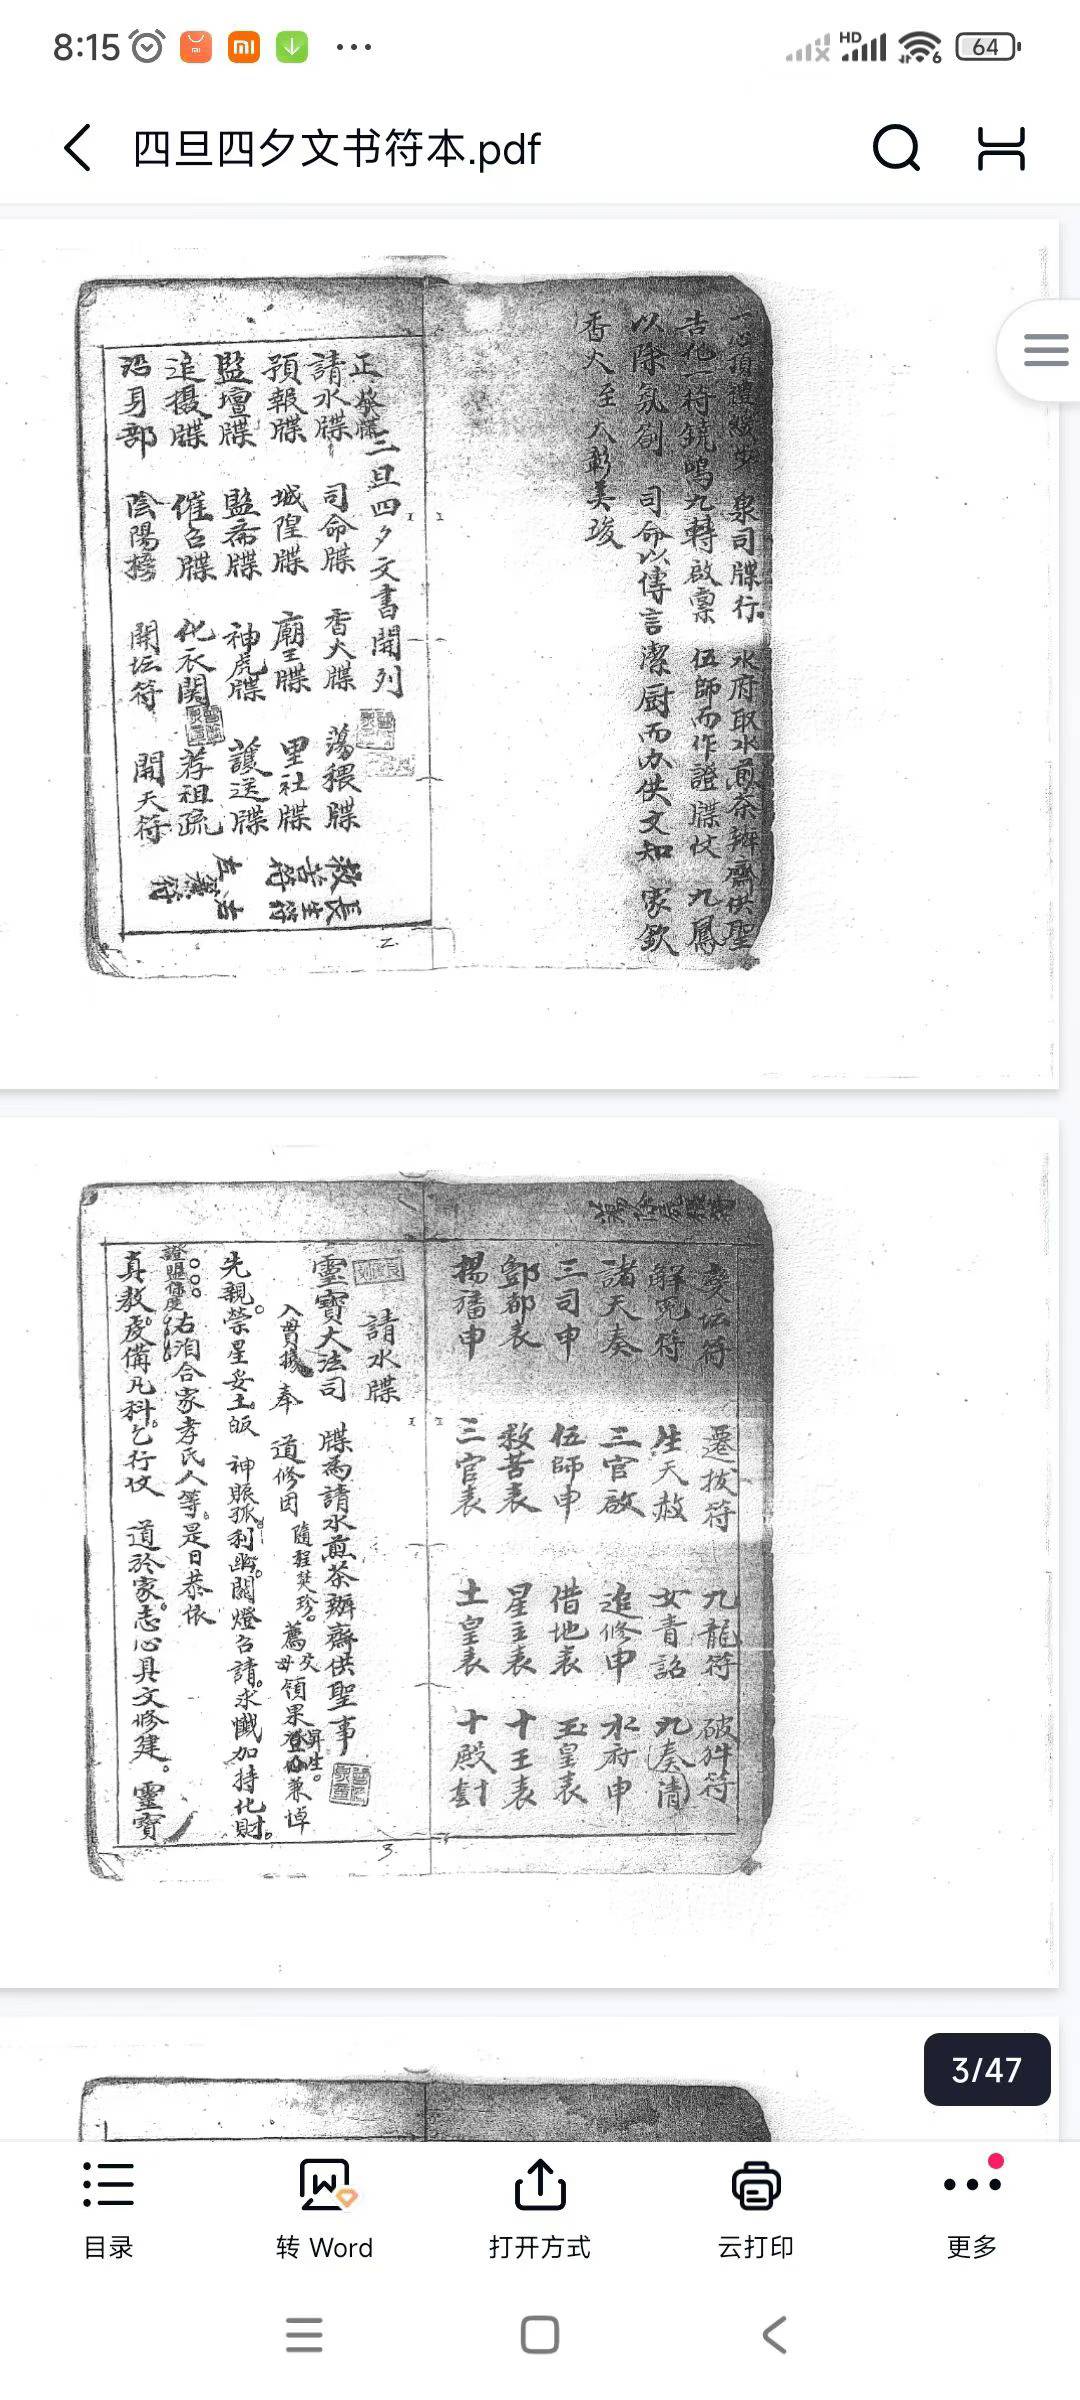 8:15
HD
6
64
四旦四夕文书符本.pdf
水府取水煎茶辦齋供聖
泉司牒行
九轉啟稟 伍師而作證牒仗 九鳳
以除氛 司命以傳言潔厨而办供文知 家欽
香火至
四夕文書開列
請水牒 司命牒 香火牒 蕩穢牒
預報牒 城隍牒 廟王牒 里社牒
監壇牒 監斋牒 神虎牒 護送牒
追摄牒 催召牒 化衣関 荐祖疏
沿身部 陰陽榜 開坛符 開天符
救苦符 長生符
2
坛符 遷拔符 九龍符 破 符
解冤符 生天赦 女青詔 九奏清
諸天奏 三官啟 追修申 水府申
三司申 伍師申 借地表 玉皇表
酆都表 救苦表 星主表 十王表
揚旙申 三官表 土皇表 十殿封
請水牒
靈寶大法司 牒為請水煎茶辦齋供聖事
入貫據 奉 道修因 隨程焚珍。薦 父母 領果 昇生。兼悼
先親。榮星妥土。皈 神賑孤利幽。關燈召請。求懺加持化財。
證盟保度 右洎合家孝氏人等。是日恭依
真教。虔備凡科。乞行仗 道於家。志心具文修建。靈寶
3
3/47
目录
转 Word
打开方式
云打印
更多